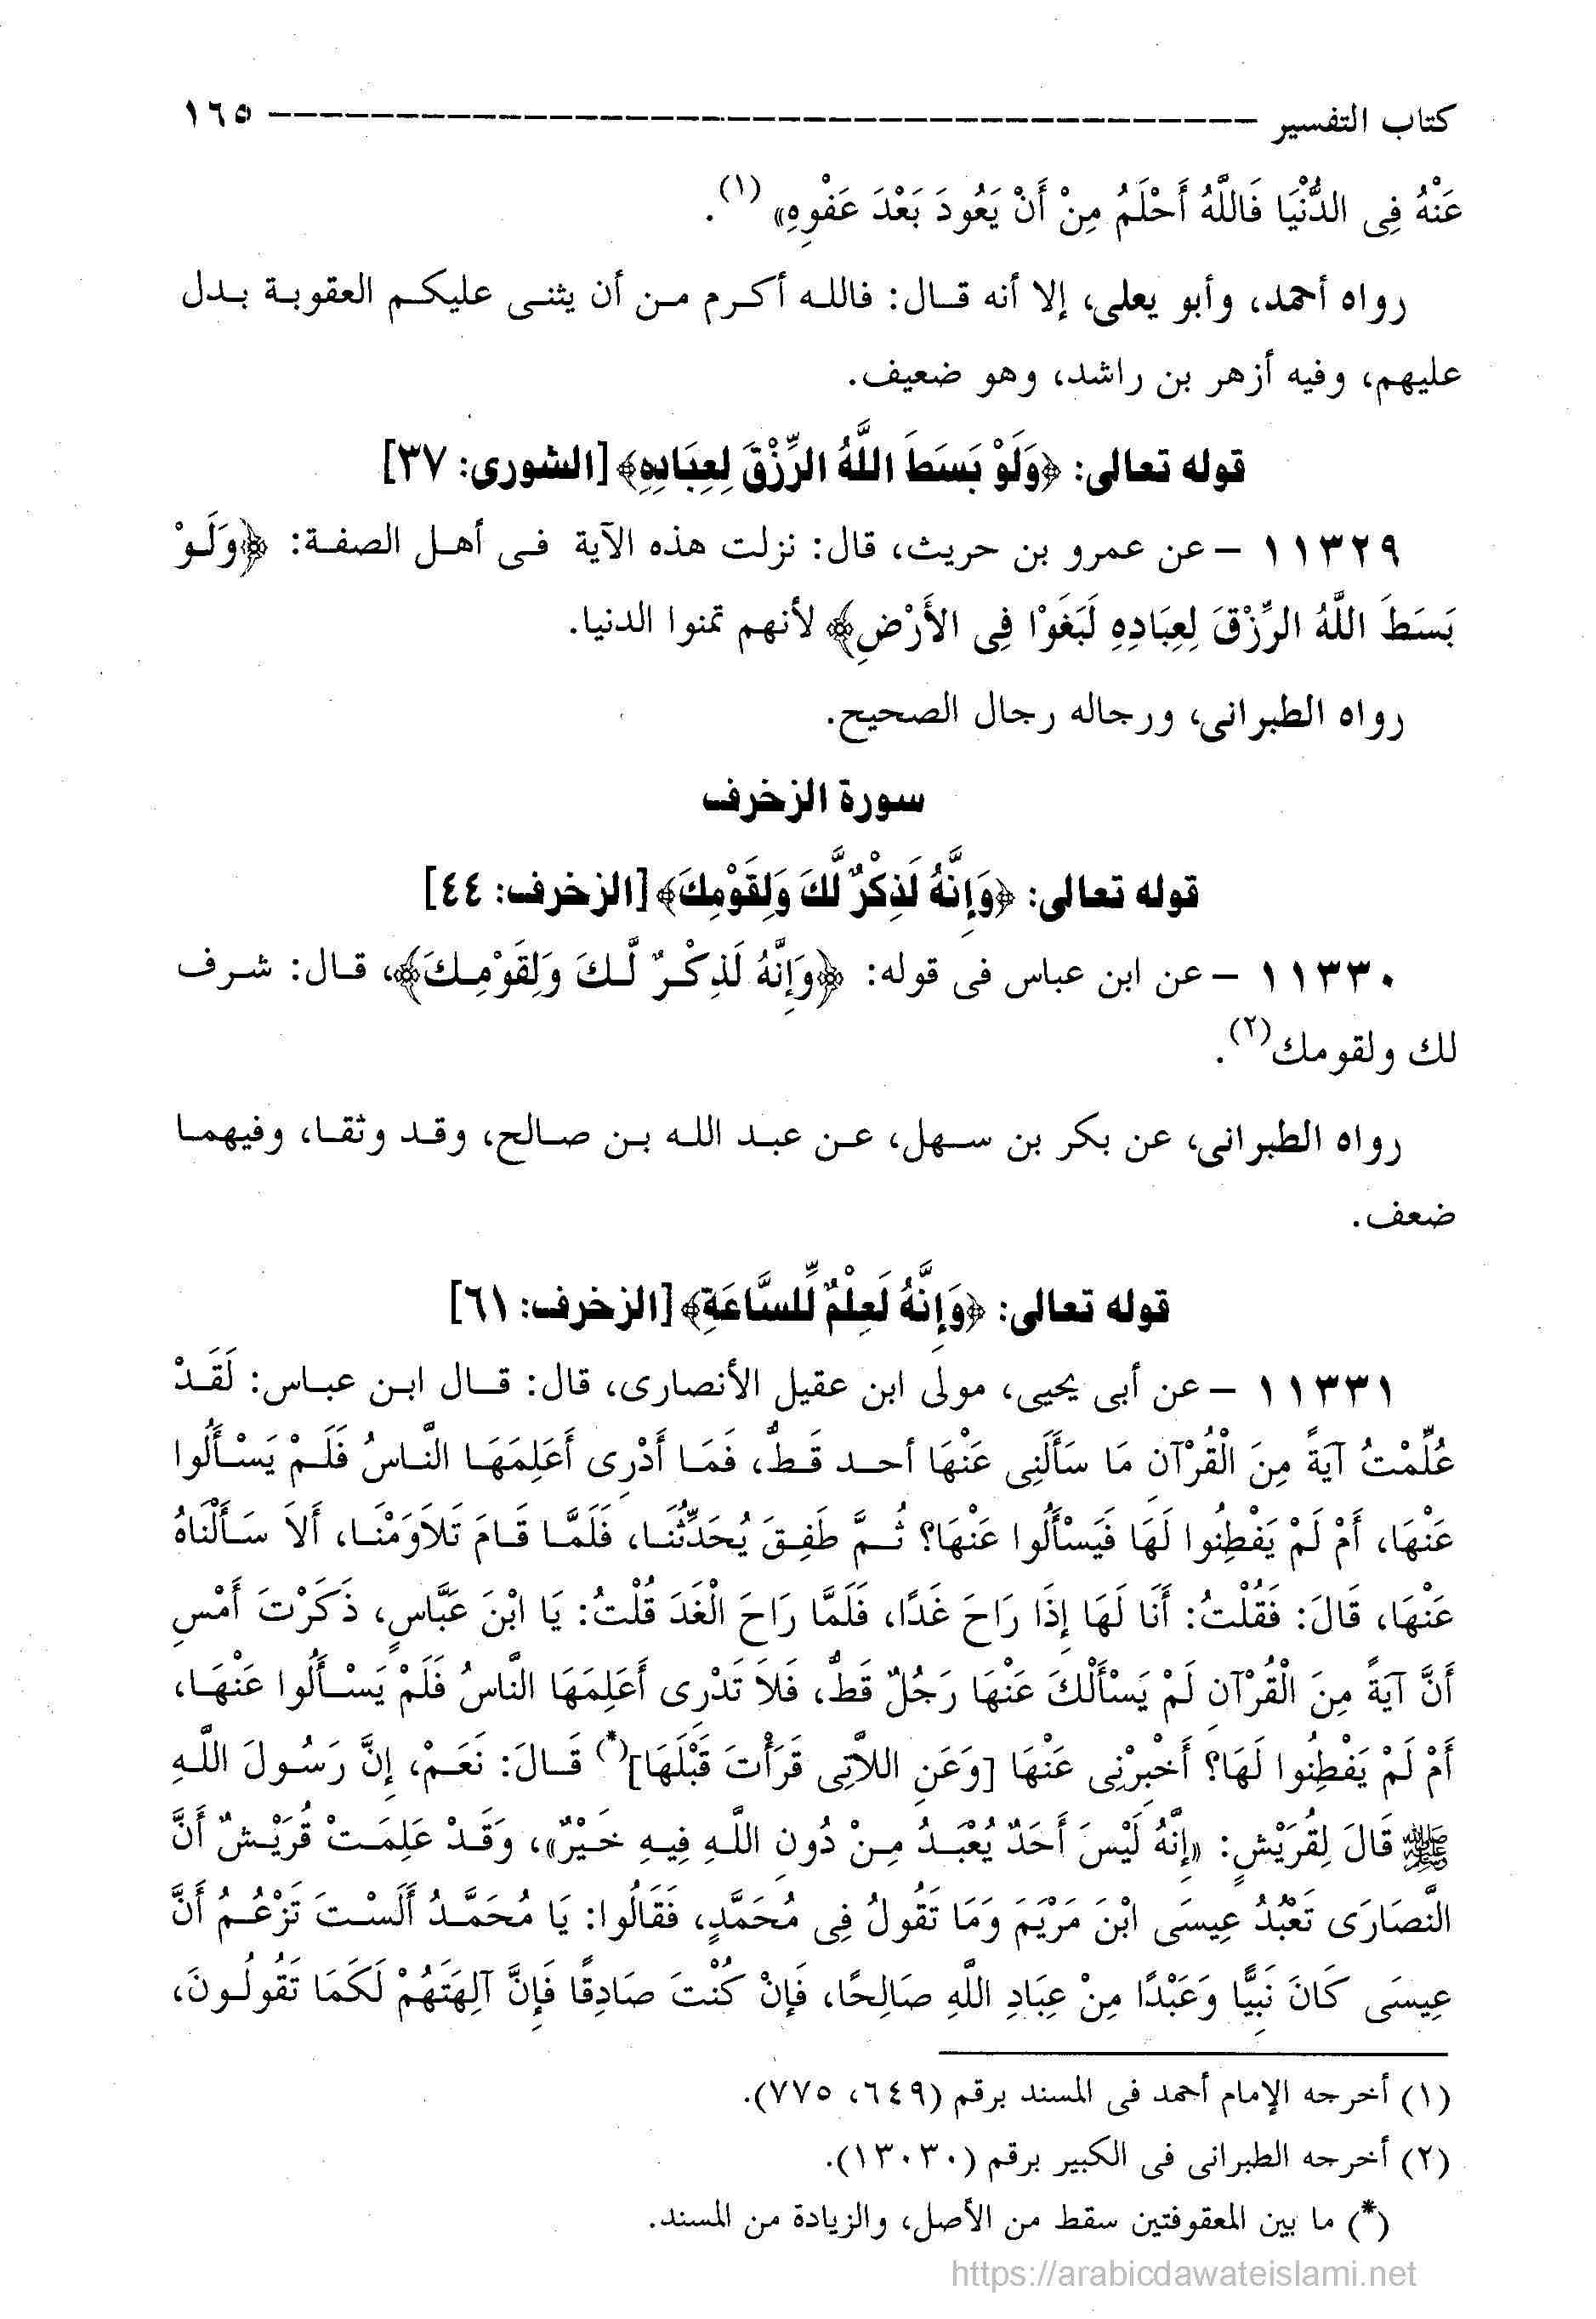 كتاب التفسير ــــــــــــــــــــــــــــــــــــــــــ ١٦٥
عَنْهُ فِى الدُّنْيَا فَاللَّهُ أَحْلَمُ مِنْ أَنْ يَعُودَ بَعْدَ عَفْوِهِ» (١).
رواه أحمد، وأبو يعلى، إلا أنه قال: فالله أكرم من أن يثنى عليكم العقوبة بدل
عليهم، وفيه أزهر بن راشد، وهو ضعيف.
قوله تعالى: ﴿وَلَوْ بَسَطَ اللَّهُ الرِّزْقَ لِعِبَادِهِ﴾ [الشورى: ٣٧]
١١٣٢٩ – عن عمرو بن حريث، قال: نزلت هذه الآية فى أهل الصفة: ﴿وَلَوْ
بَسَطَ اللَّهُ الرِّزْقَ لِعِبَادِهِ لَبَغَوْا فِى الأَرْضِ﴾ لأنهم تمنوا الدنيا.
رواه الطبرانى، ورجاله رجال الصحيح.
سورة الزخرف
قوله تعالى: ﴿وَإِنَّهُ لَذِكْرٌ لَّكَ وَلِقَوْمِكَ﴾ [الزخرف: ٤٤]
١١٣٣٠ – عن ابن عباس فى قوله: ﴿وَإِنَّهُ لَذِكْرٌ لَّكَ وَلِقَوْمِكَ﴾، قال: شرف
لك ولقومك(٢).
رواه الطبرانى، عن بكر بن سهل، عن عبد الله بن صالح، وقد وثقا، وفيهما
ضعف.
قوله تعالى: ﴿وَإِنَّهُ لَعِلْمٌ لِّلسَّاعَةِ﴾ [الزخرف: ٦١]
١١٣٣١ – عن أبى يحيى، مولى ابن عقيل الأنصارى، قال: قال ابن عباس: لَقَدْ
عُلِّمْتُ آيَةً مِنَ الْقُرْآنِ مَا سَأَلَنِى عَنْهَا أحد قَطُّ، فَمَا أَدْرِى أَعَلِمَهَا النَّاسُ فَلَمْ يَسْأَلُوا
عَنْهَا، أَمْ لَمْ يَفْطِنُوا لَهَا فَيَسْأَلُوا عَنْهَا؟ ثُمَّ طَفِقَ يُحَدِّثُنَا، فَلَمَّا قَامَ تَلاَوَمْنَا، أَلاَ سَأَلْنَاهُ
عَنْهَا، قَالَ: فَقُلْتُ: أَنَا لَهَا إِذَا رَاحَ غَدًا، فَلَمَّا رَاحَ الْغَدَ قُلْتُ: يَا ابْنَ عَبَّاسٍ، ذَكَرْتَ أَمْسِ
أَنَّ آيَةً مِنَ الْقُرْآنِ لَمْ يَسْأَلْكَ عَنْهَا رَجُلٌ قَطُّ، فَلاَ تَدْرِى أَعَلِمَهَا النَّاسُ فَلَمْ يَسْأَلُوا عَنْهَا،
أَمْ لَمْ يَفْطِنُوا لَهَا؟ أَخْبِرْنِى عَنْهَا [وَعَنِ اللاَّتِى قَرَأْتَ قَبْلَهَا](*) قَالَ: نَعَمْ، إِنَّ رَسُولَ اللَّهِ
ﷺ قَالَ لِقُرَيْشٍ: «إِنَّهُ لَيْسَ أَحَدٌ يُعْبَدُ مِنْ دُونِ اللَّهِ فِيهِ خَيْرٌ»، وَقَدْ عَلِمَتْ قُرَيْشٌ أَنَّ
النَّصَارَى تَعْبُدُ عِيسَى ابْنَ مَرْيَمَ وَمَا تَقُولُ فِى مُحَمَّدٍ، فَقَالُوا: يَا مُحَمَّدُ أَلَسْتَ تَزْعُمُ أَنَّ
عِيسَى كَانَ نَبِيًّا وَعَبْدًا مِنْ عِبَادِ اللَّهِ صَالِحًا، فَإِنْ كُنْتَ صَادِقًا فَإِنَّ آلِهَتَهُمْ لَكَمَا تَقُولُونَ،
(١) أخرجه الإمام أحمد فى المسند برقم (٦٤٩، ٧٧٥).
(٢) أخرجه الطبرانى فى الكبير برقم (١٣٠٣٠).
(*) ما بين المعقوفتين سقط من الأصل، والزيادة من المسند.
https://arabicdawateislami.net